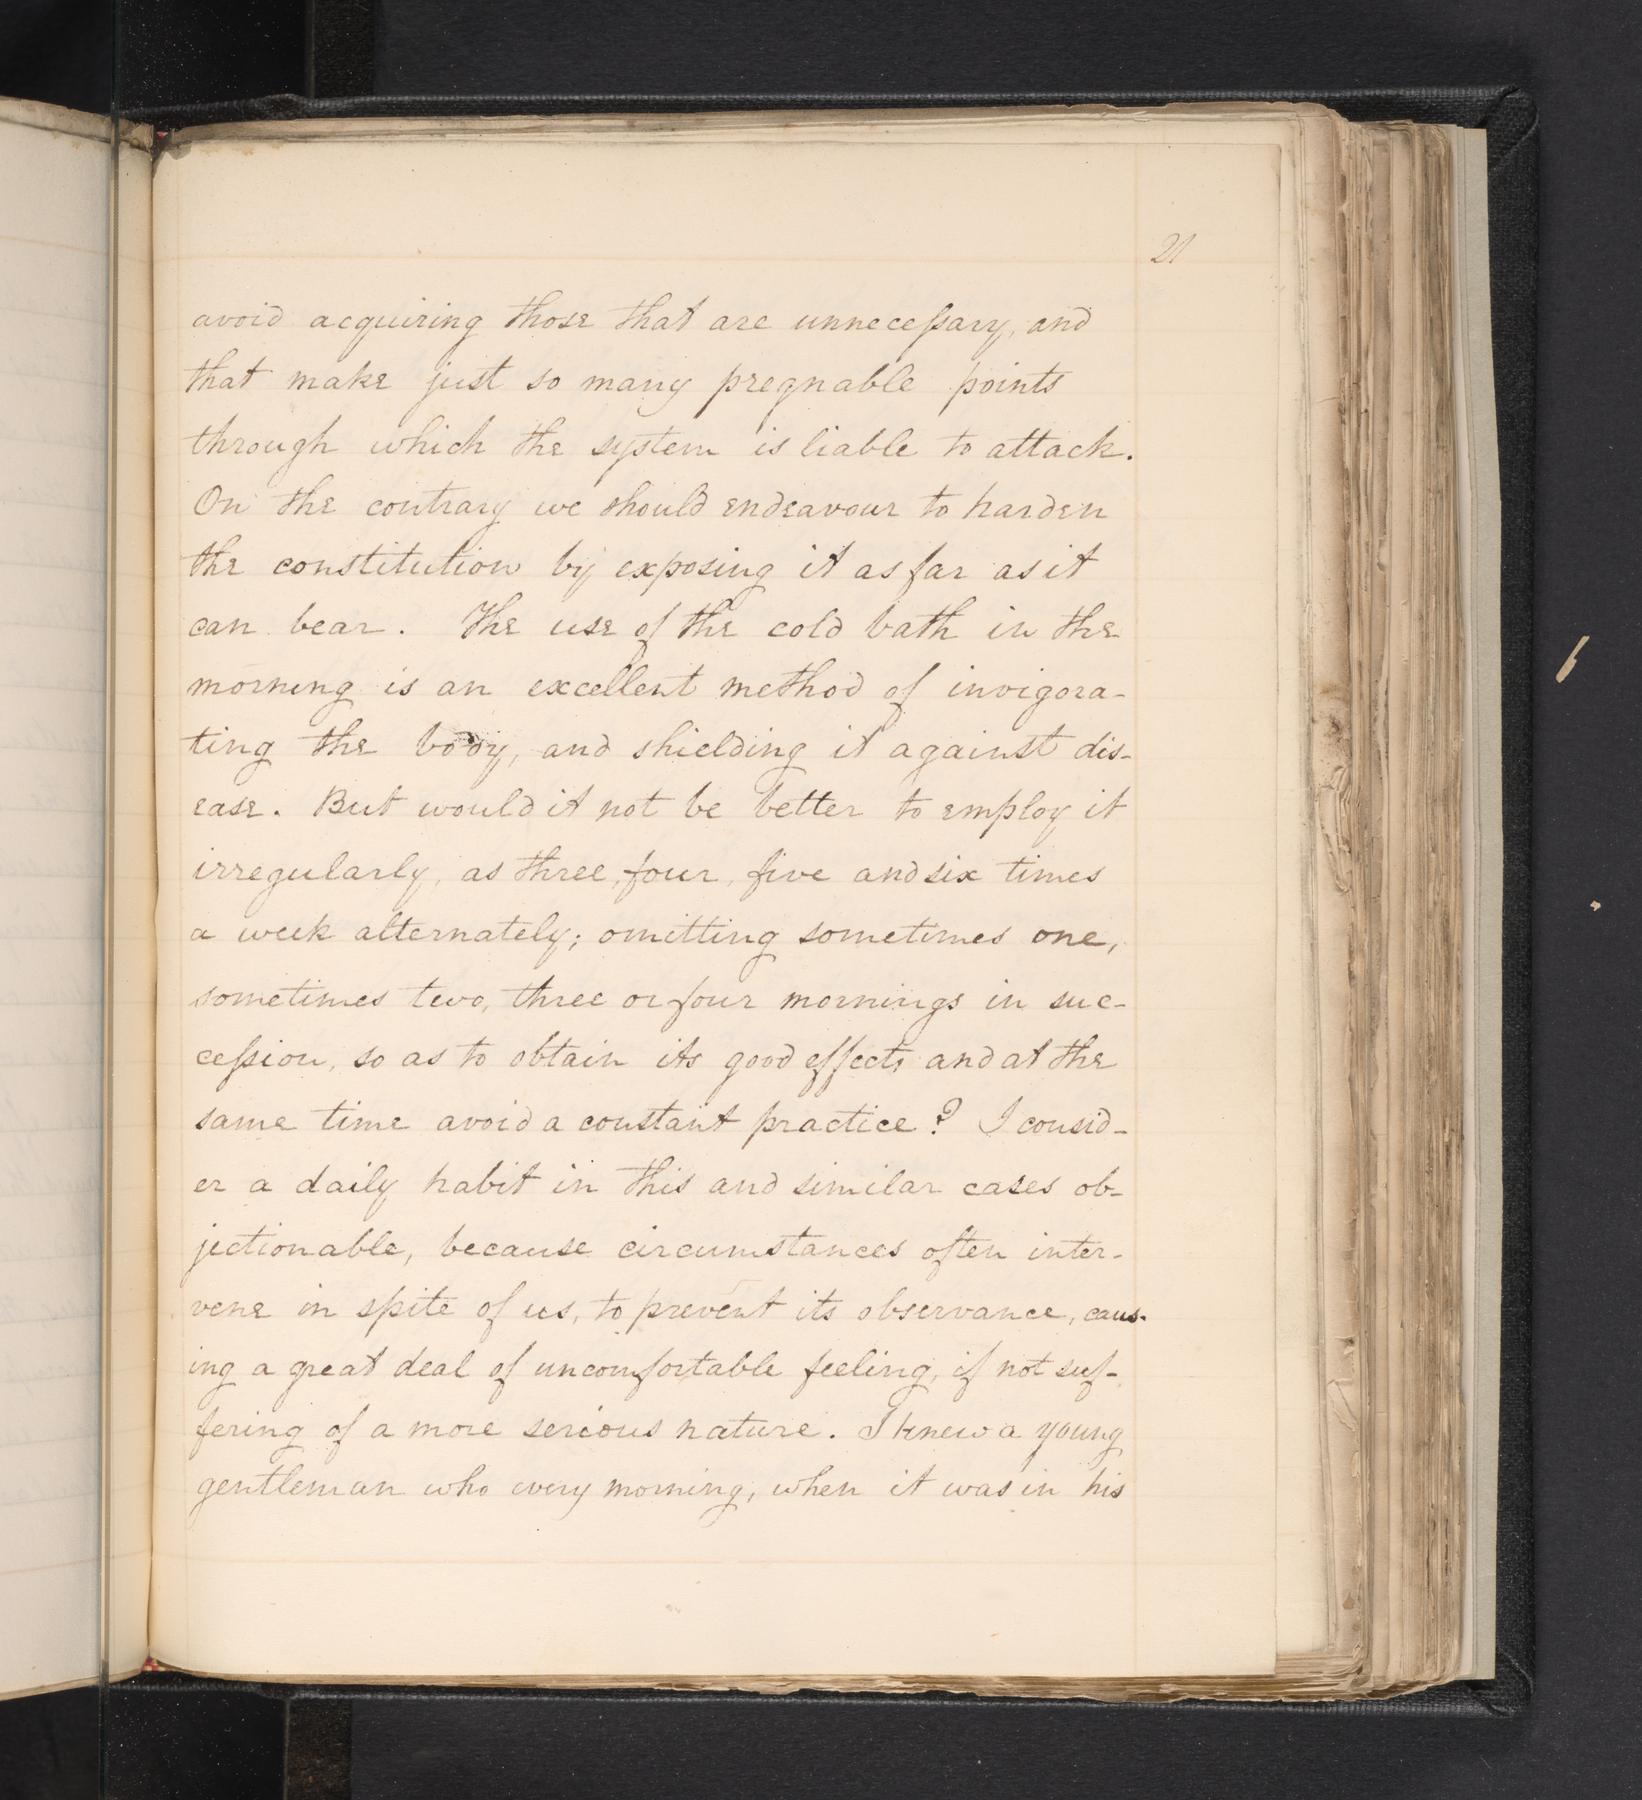 21
avoid acquiring those that are unnecessary, and
that make just so many pregnable points
through which the system is liable to attack.
On the contrary we should endeavour to harden
the constitution by exposing it as far as it
can bear. The use of the cold bath in the
morning is an excellent method of invigora-
ting the body, and shielding it against dis-
ease. But would it not be better to employ it
irregularly, as three, four, five and six times
a week alternately; omitting sometimes one,
sometimes two, three or four mornings in suc-
cession, so as to obtain its good effects and at the
same time avoid a constant practice? I consid-
er a daily habit in this and similar cases ob-
jectionable, because circumstances often inter-
vene in spite of us, to prevent its observance, caus-
ing a great deal of uncomfortable feeling, if not suf-
fering of a more serious nature. I knew a young
gentleman who every morning, when it was in his